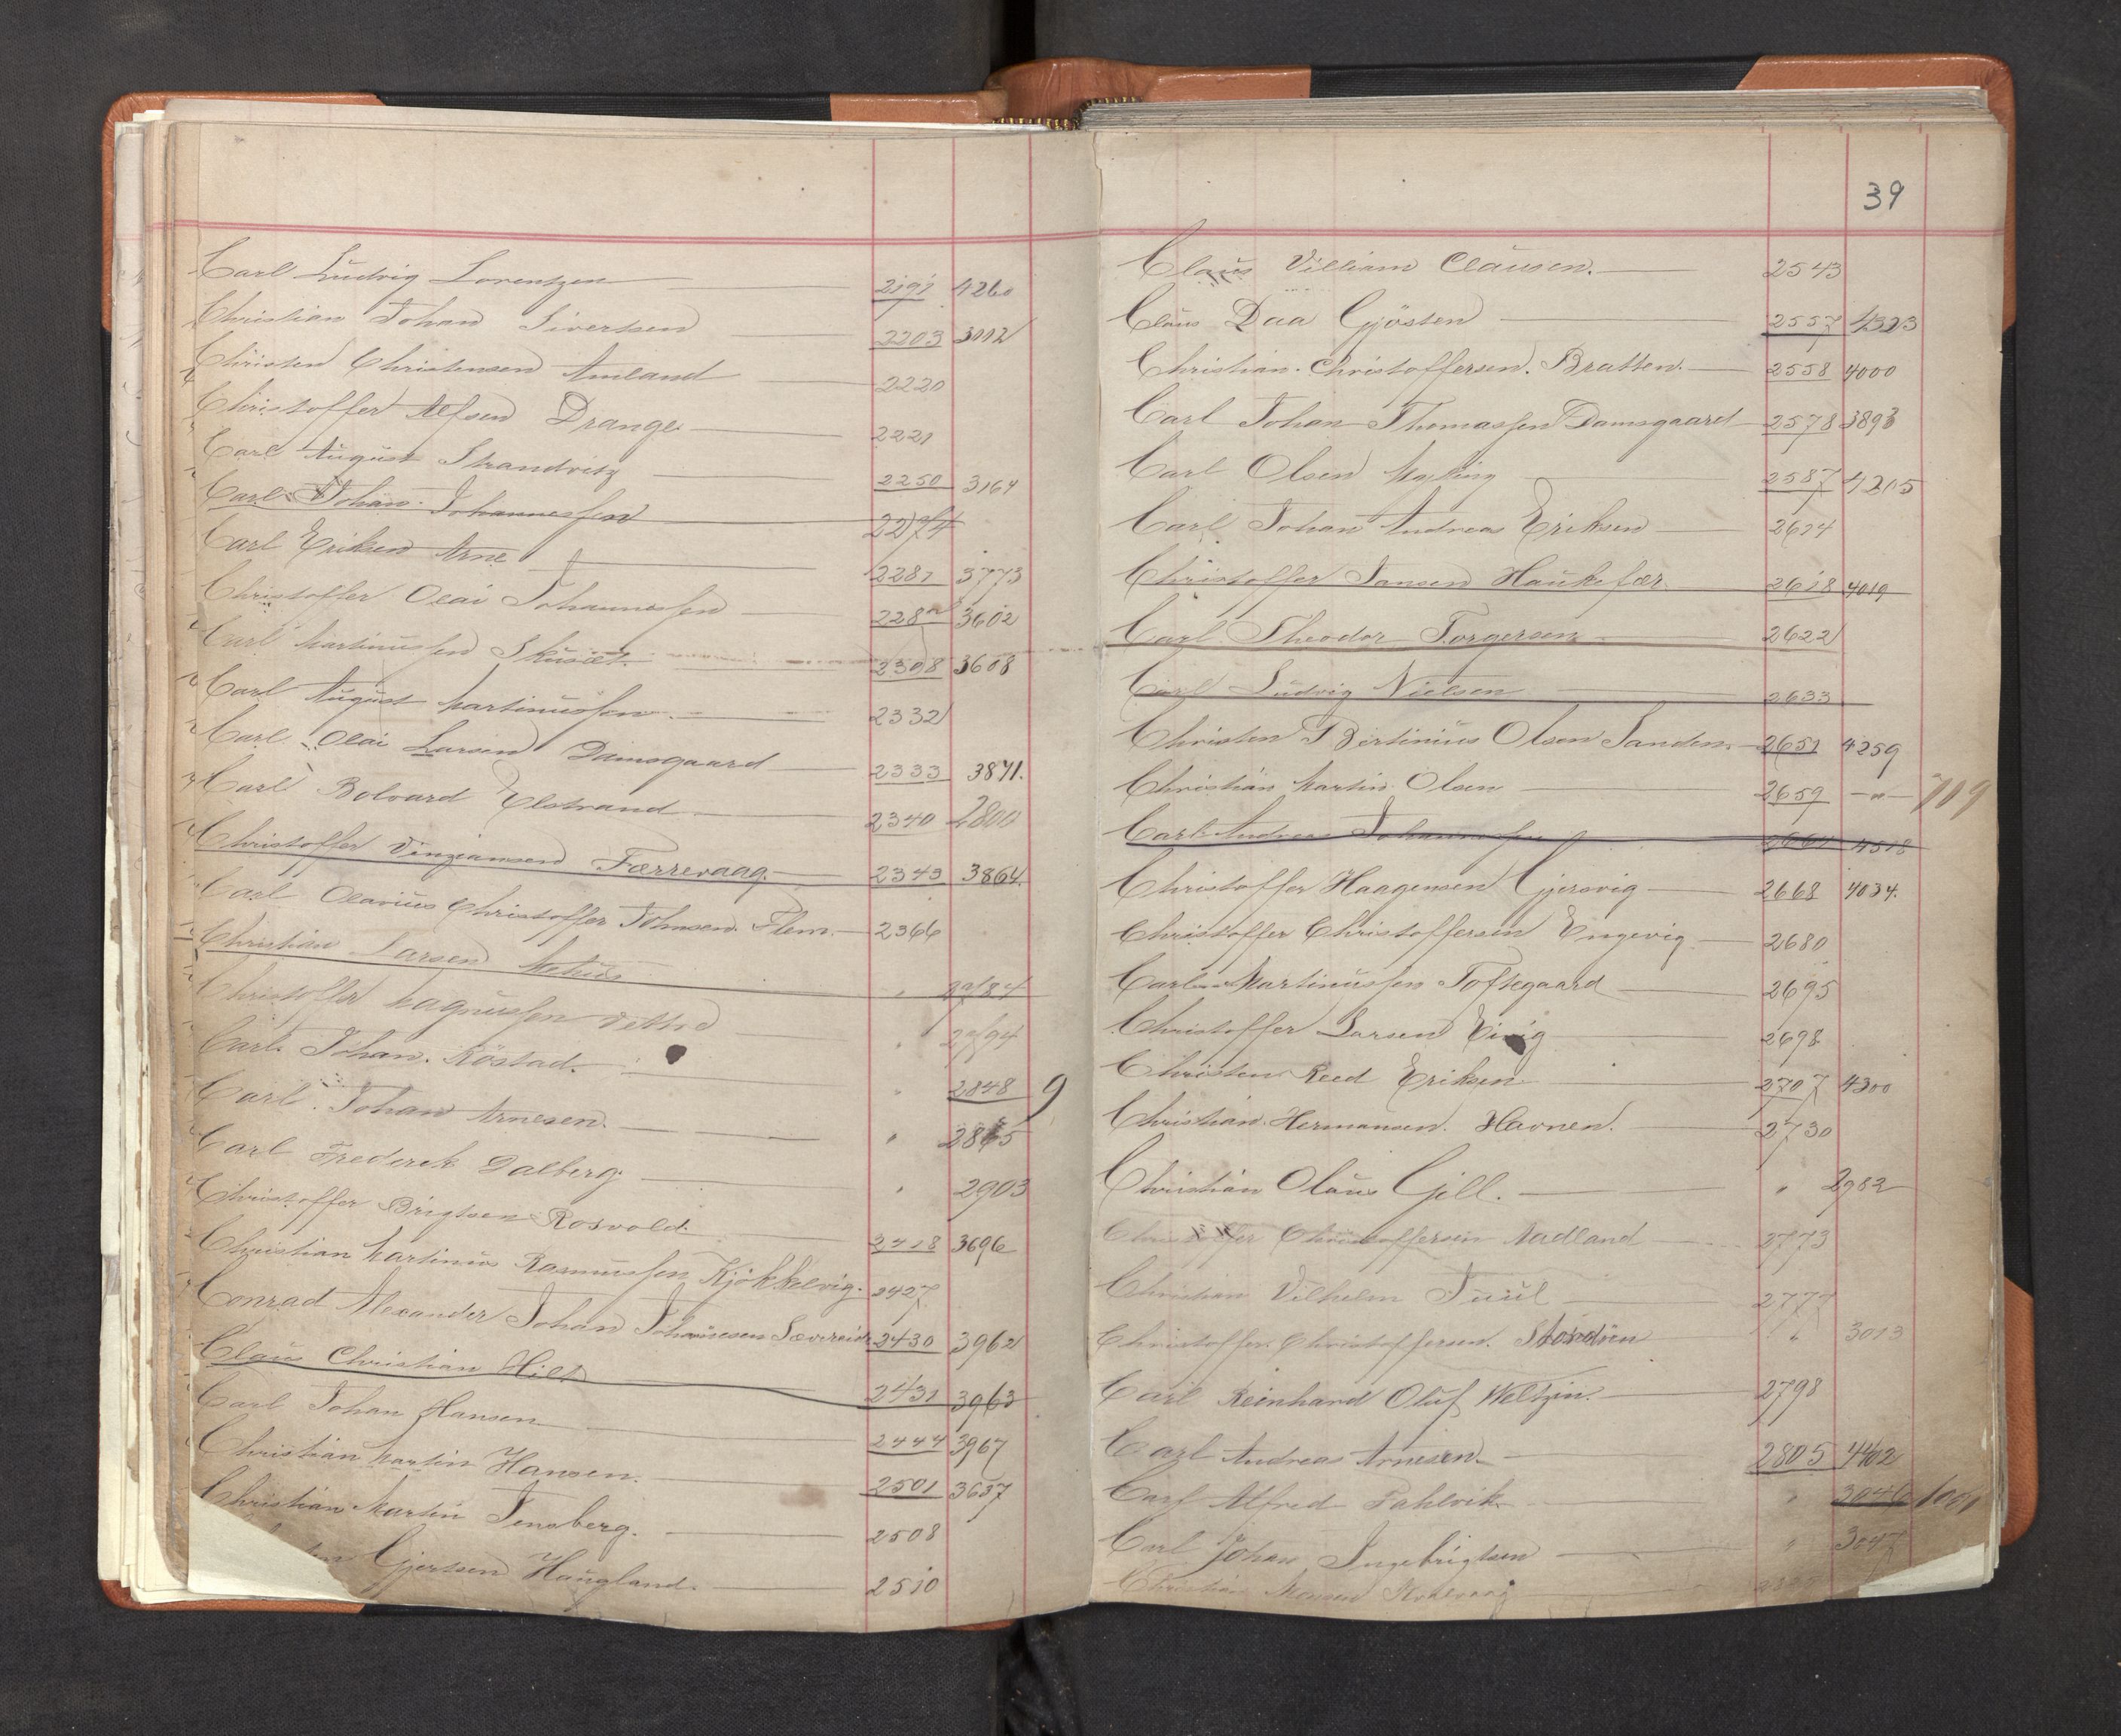 Carl Ludvig Lorentzen 2191 4260
Christian Johan Sivertsen 2203 3012
Christen Christensen Amland 2220
Christoffer Alfsen Drange 2221
Carl August Strandvitz 2250 3164
Carl Johan Johannessen 2274
Carl Eriksen Arne 2281 3773
Christoffer Olai Johannessen 3602
Carl Martinussen 2308 3608
Carl August Martinussen 2332
Carl Olai Larsen Damsgaard 2333 3871.
Carl Bolvard Elstrand 2340 2800
Christoffer Færrevaag 2343 3864.
Carl Olavius Christoffer Johnsen 2366
Christian Larsen "
Christoffer Magnussen "
Carl Johan Röstad. " 2848 9
Carl Johan Arnesen. "
Carl Frederik Dalberg. " 2903
Christoffer Brigtsen Rosvold. 2418 3696
Christian Martinus Rasmussen Kjökkelvig. 2427
Conrad Alexander Johan 2430 3962
Claus Christian Hilt 2431 3963
Carl Johan Hansen 2444 3967
Christian Martin Hansen. 2501 3637
Christian Martin Tensberg. 2508
Gjertsen Haugland. 2510
39
Claus Villiam Clausen. 2543
Claus Daa Gjösten 2557 4323
Christian Christoffersen Bratten. 2558 4000
Carl Johan Thomassen Damsgaard 2578 3893
Carl Olsen 2587 4205
Carl Johan Andreas Eriksen 2614
Christoffer Jansen Haukefær 2618 4019
Carl Theodor Torgersen 2622
Carl Ludvig Nielsen 2633
Christen Bertinius Olsen Sanden. 2651 4259
Christian Martin Olsen 2659 — " — 709
Carl Andreas Johannessen 2661 4518
Christoffer Haagensen Gjersvig 2668 4034.
Christoffer Christoffersen Engevig 2680
Carl Martinussen Toftegaard 2695
Christoffer Larsen 2698
Christen Reed Eriksen 2707 4300
Christian Hermansen. Havnen. 2730
Christian Olaus Gill. " 2982
Christoffer Christoffersen Aadland 2773
Christian Vilhelm Juul 2777
Christoffer Christoffersen. " 3013
Carl Reinhard Oluf Weltzin. 2798
Carl Andreas Arnesen. 2805 4402
Carl Alfred " 3040
Carl Johan Ingebrigtsen " 3047
Christian Monsen